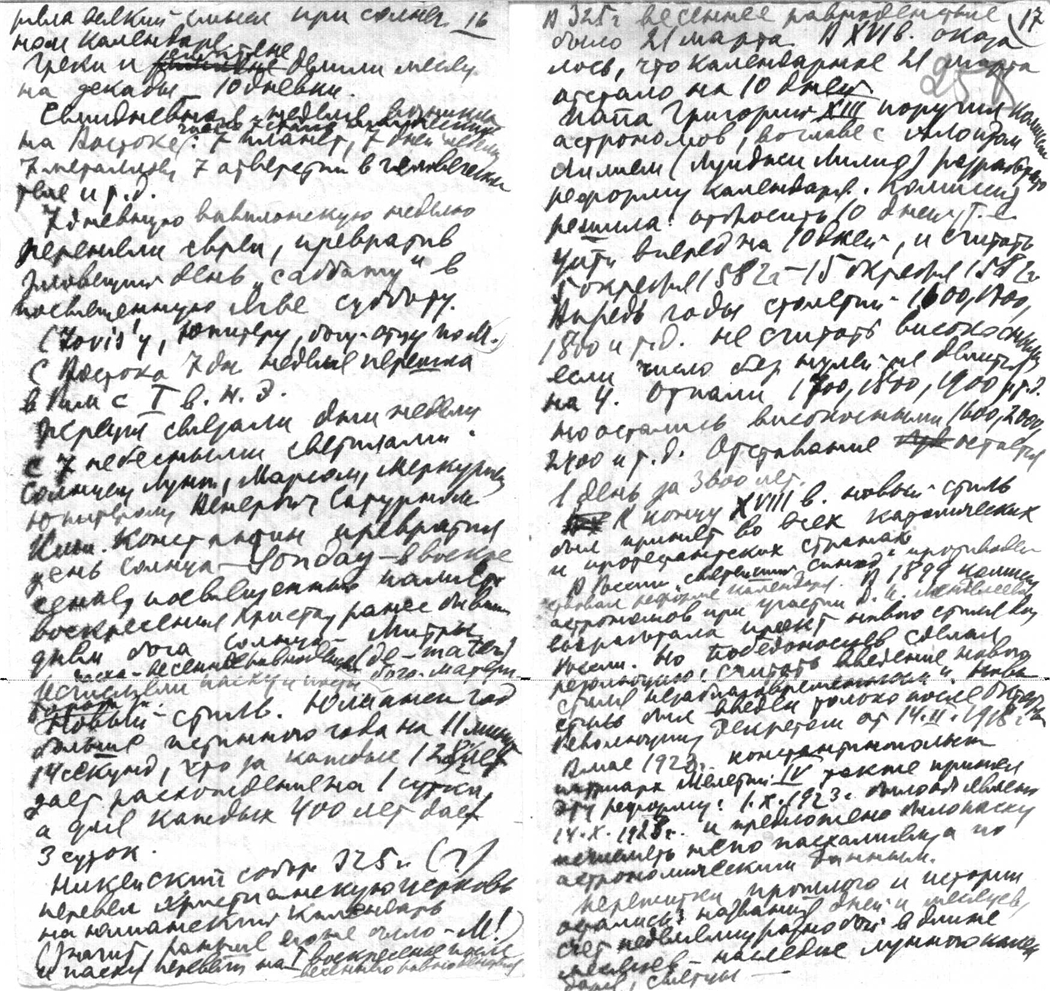 ряла всякий смысл при солнеч- 16
ном календаре.
Греки и египтяне делили месяц
на декады – 10 дневки.
Семидневная неделя возникла
на Востоке: 7 планет, 7 дней недели
7 металлов, 7 отверстий в человеческом
теле и т.д.
7 дневную вавилонскую неделю
переняли евреи, превратив
зловещий день „саббату" в
посвященную Ягве субботу.
(Jovis'у, Юпитеру, богу-отцу по М.)
С Востока 7 дн неделя перешла
в Рим с I в. н. э.
Жрецы связали дни недели
с 7 небесными светилами:
Солнцем, Луной, Марсом, Меркурием
Юпитером Венерой и Сатурном
Имп. Константин превратил
день солнца – Sonday – в воскре
сение, посвященный памяти
воскресения Христа, ранее бывший
днём бога солнца – Митры
Новый стиль. Юлианск год
больше истинного года на 11 минут
14 секунд, что за каждые 128 лет
дает расхождение на 1 сутки,
а для каждых 400 лет дает
3 суток.
Никейский собор 325 г. (?)
перевел христианскую церковь
на юлианский календарь
(значит, раньше его не было – М!)
и пасху перевели на 1 воскресенье после
весеннего равноденствия
В 325 г весеннее равноденствие 17
было 21 марта. В XVI в. оказа
лось, что календарное 21 марта
отстало на 10 дней.
Папа Григорий XIII поручил комиссии
астрономов, во главе с Алоизом
Лилием (Луиджи Лилио) разработать
реформу календаря. Комиссия
решила: отбросить 10 дней, т.е
уйти вперед на 10 дней, и считать
5 октября 1582 г – 15 октября 1582 г
Впредь годы столетий – 1600, 1700,
1800 и т.д. не считать високосными
если число без нулей не делится
на 4. Отпали 1700, 1800, 1900 и т.д.
Но остались високосными 1600, 2000,
2400 и т.д. Отставание остается
1 день за 3600 лет.
К концу XVIII в. новый стиль
был принят во всех католических
и протестантских странах
В России, святейший синод противодей
ствовал реформе календаря. В 1899 комиссия
астрономов при участии Д. И. Менделеева
выработала проект нового стиля для
России. Но Победоносцев сделал
резолюцию: считать введение нового
стиля неблаговременным". Новый
стиль был введен только после Октябр
революции декретом от 14.II.1918 г.
В мае 1923 г. константинопольск
патриарх Мелетий IV также принял
эту реформу: 1.X.1923 г. было объявлено
14.X.1923 г. и предложено было пасху
исчислять не по пасхалиям, а по
астрономическим данным.
Пережитки прошлого и истории
остались: названия дней и месяцев,
счет неделями, разнобой в длине
месяцев – наследие лунного кален
даря, святцы –